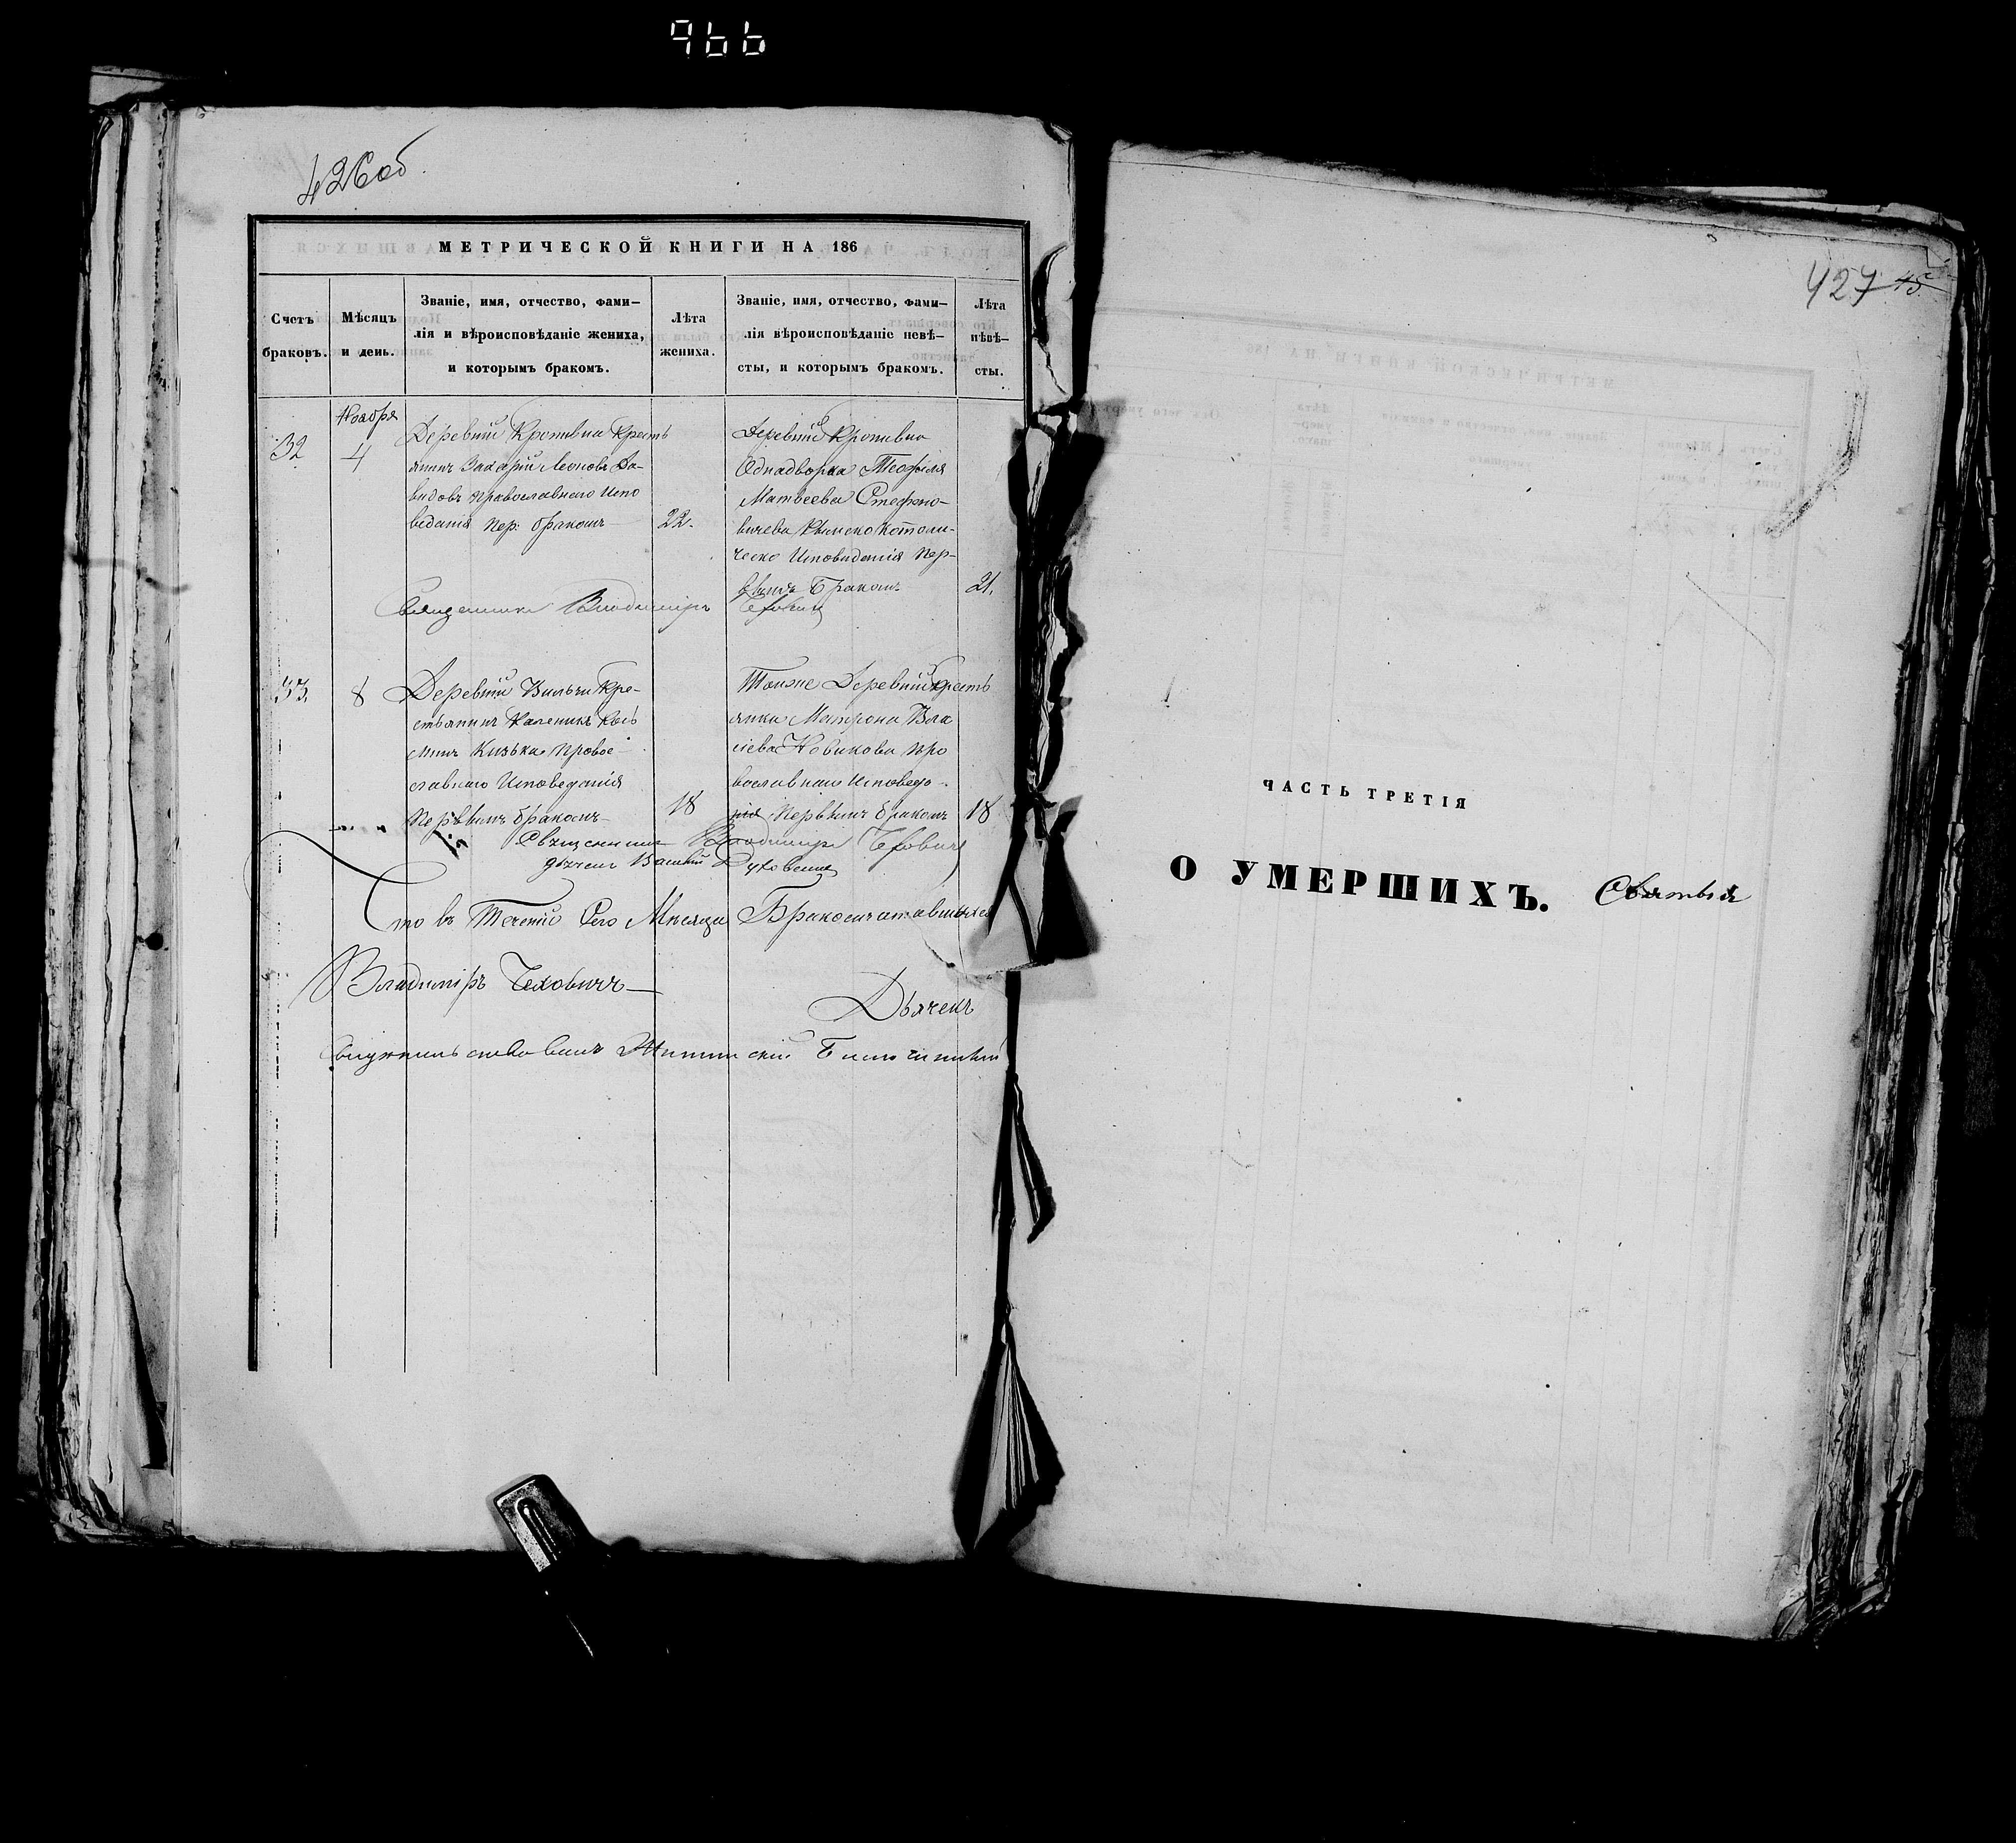 966
426об.
МЕТРИЧЕСКОЙ КНИГИ НА 186
Счетъ браковъ.
Мѣсяцъ и день.
Званіе, имя, отчество, фами-
лія и вѣроисповѣданіе жениха,
и которымъ бракомъ.
Лѣта жениха.
Званіе, имя, отчество, фами-
лія вѣроисповѣданіе невѣ-
сты, и которымъ бракомъ.
Лѣта невѣ-
сты.
32
Ноября
4
Деревни Кропивна Кресть
янинъ Захарій Леоновъ Да-
видовъ Православнаго Испо
веданія пер: бракомъ
22.
Деревни Кропивна
Однадворка Теофиля
Матвеева Стефано-
вичева Римско Католи-
ческо Исповиданія Пер-
вымъ Бракомъ
21.
Священникъ Владиміръ Чехович
33.
8
Деревни Вильчи Кре-
стьянинъ Каленикъ
Кизька Правос-
лавнаго Исповеданія
Первымъ бракомъ
18
Тояже Деревни Кресть
янка Матрона Вла
сіева Новикова Пра
вославнаго Исповеда-
нія Первымъ бракомъ
18
Священникъ Владиміръ Чехович
дячекъ
Что въ Теченіи Сего Мѣсяца Бракосочетавшихся
Владиміръ Чеховичъ
Дьячекъ
427 45
ЧАСТЬ ТРЕТІЯ
О УМЕРШИХЪ.